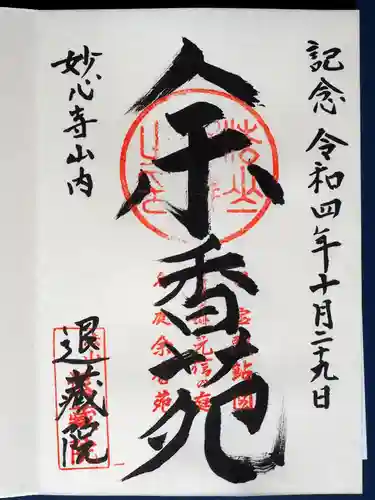 記念 令和四年十月二十九日
余香苑
妙心寺山内
退藏院